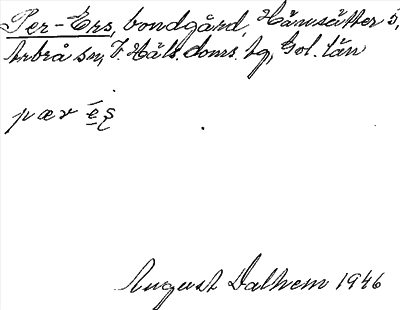 Per-Ers, bondgård, Hänsätter 5,
Arbrå sn, V. Häls. doms. tg, Gäv. län
pær éş
August Dalhem 1946